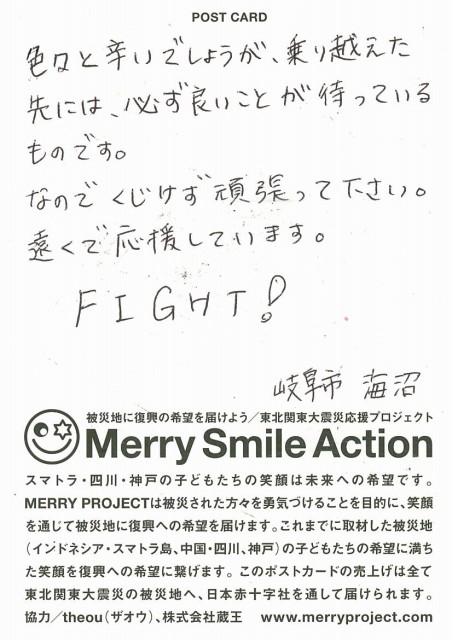 POST CARD
色々と辛いでしょうが、乗り越えた
先には、必ず良いことが待っている
ものです。
なのでくじけず頑張って下さい。
遠くで応援しています。
FIGHT!
岐阜市 海沼
被災地に復興の希望を届けよう／東北関東大震災応援プロジェクト
Merry Smile Action
スマトラ・四川・神戸の子どもたちの笑顔は未来への希望です。
MERRY PROJECTは被災された方々を勇気づけることを目的に、笑顔
を通じて被災地に復興への希望を届けます。これまでに取材した被災地
（インドネシア・スマトラ島、中国・四川、神戸）の子どもたちの希望に満ち
た笑顔を復興への希望に繋げます。このポストカードの売上げは全て
東北関東大震災の被災地へ、日本赤十字社を通して届けられます。
協力／theou（ザオウ）、株式会社蔵王 www.merryproject.com